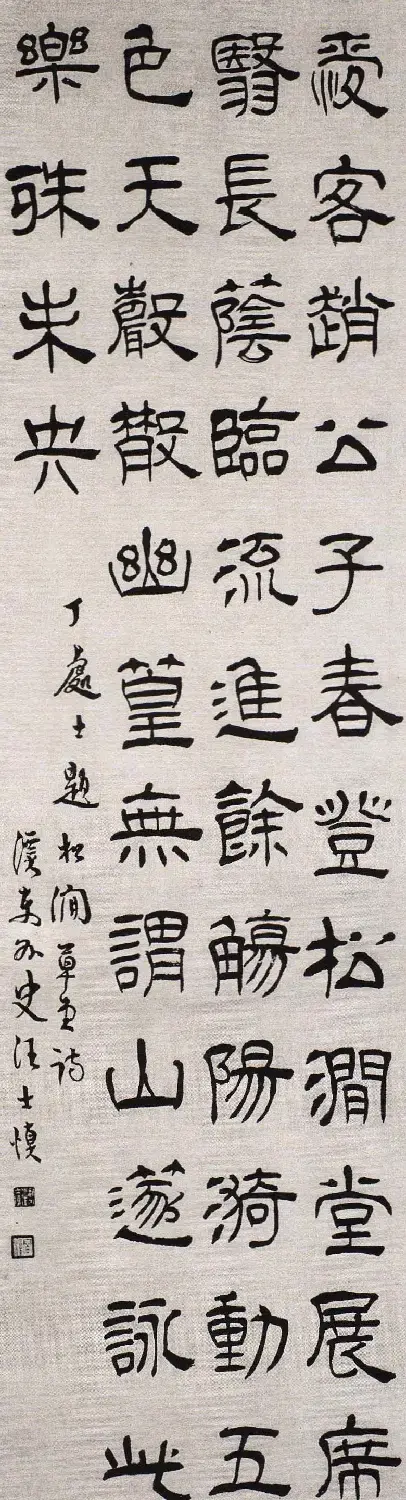 愛客趙公子春登松澗堂展席
翳長蔭臨流進餘觴陽漪動五
色天聲散幽篁無謂山遂詠此
樂殊未央
丁處士題松澗草堂詩
溪東外史汪士慎